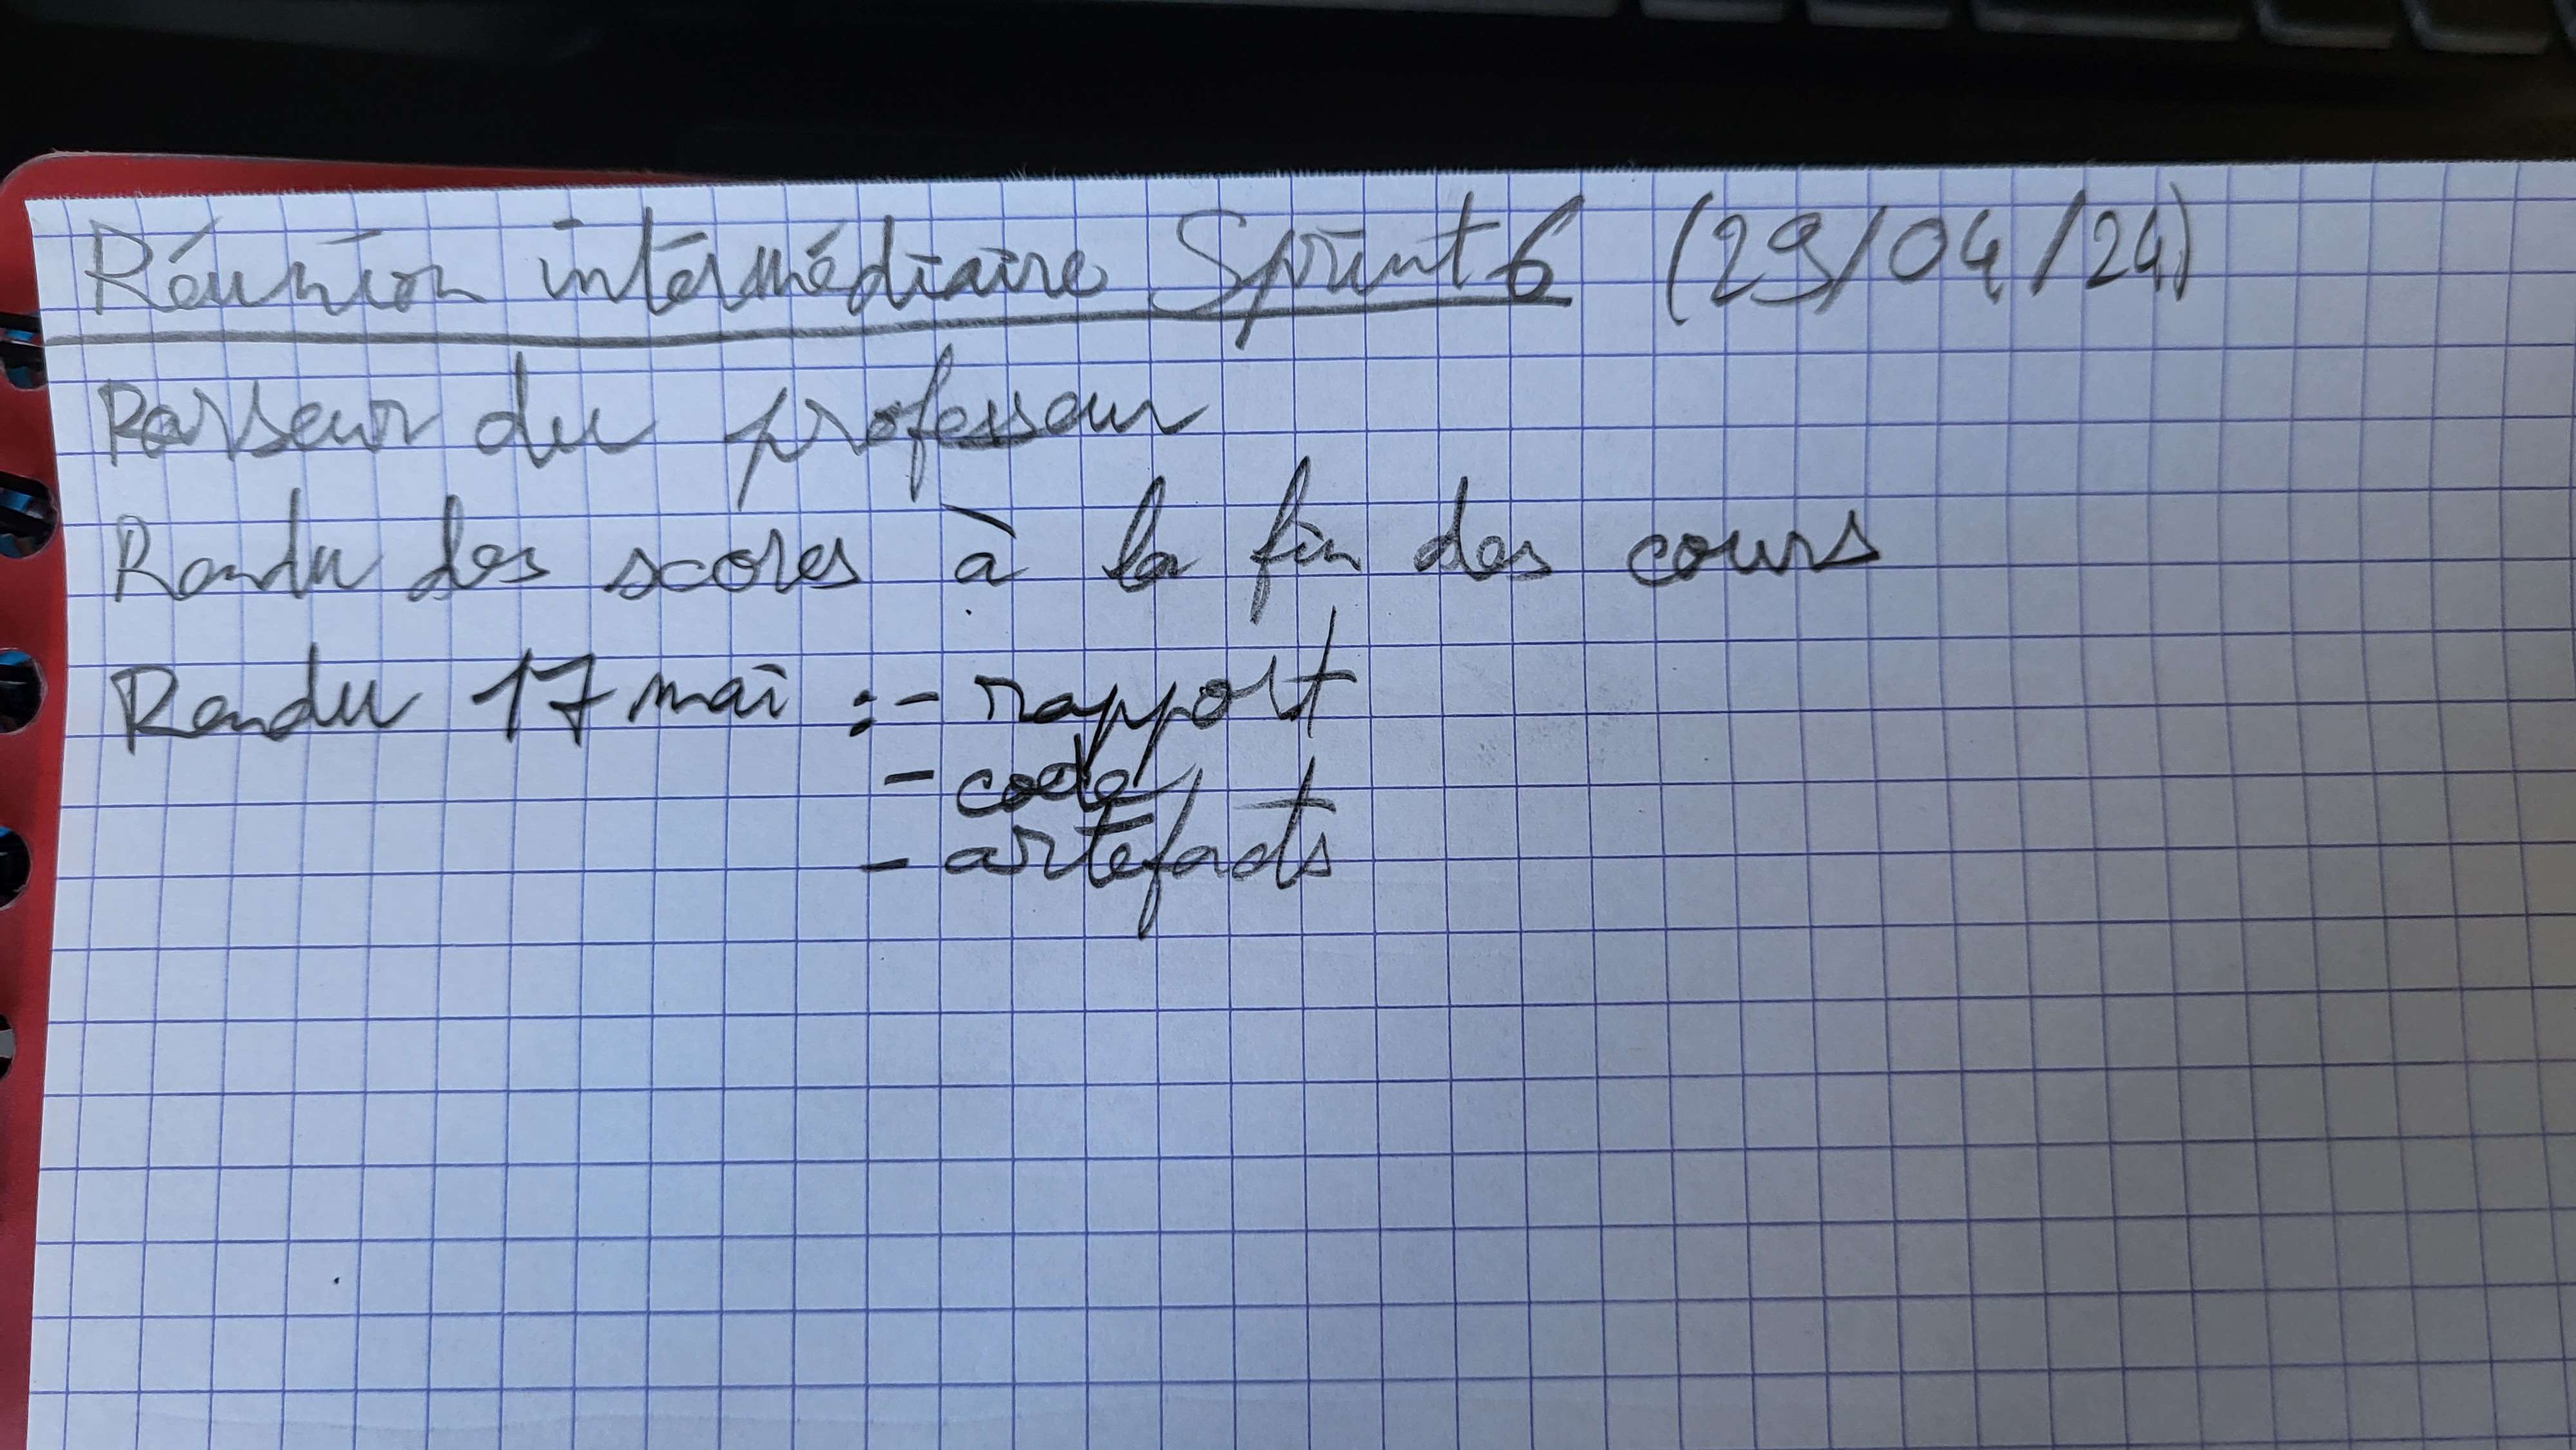 Réunion intermédiaire Sprint 6 (29/04/24)
Parseur du professeur
Rendu des scores à la fin des cours
Rendu 17 mai : - rapport
- code
- artefacts